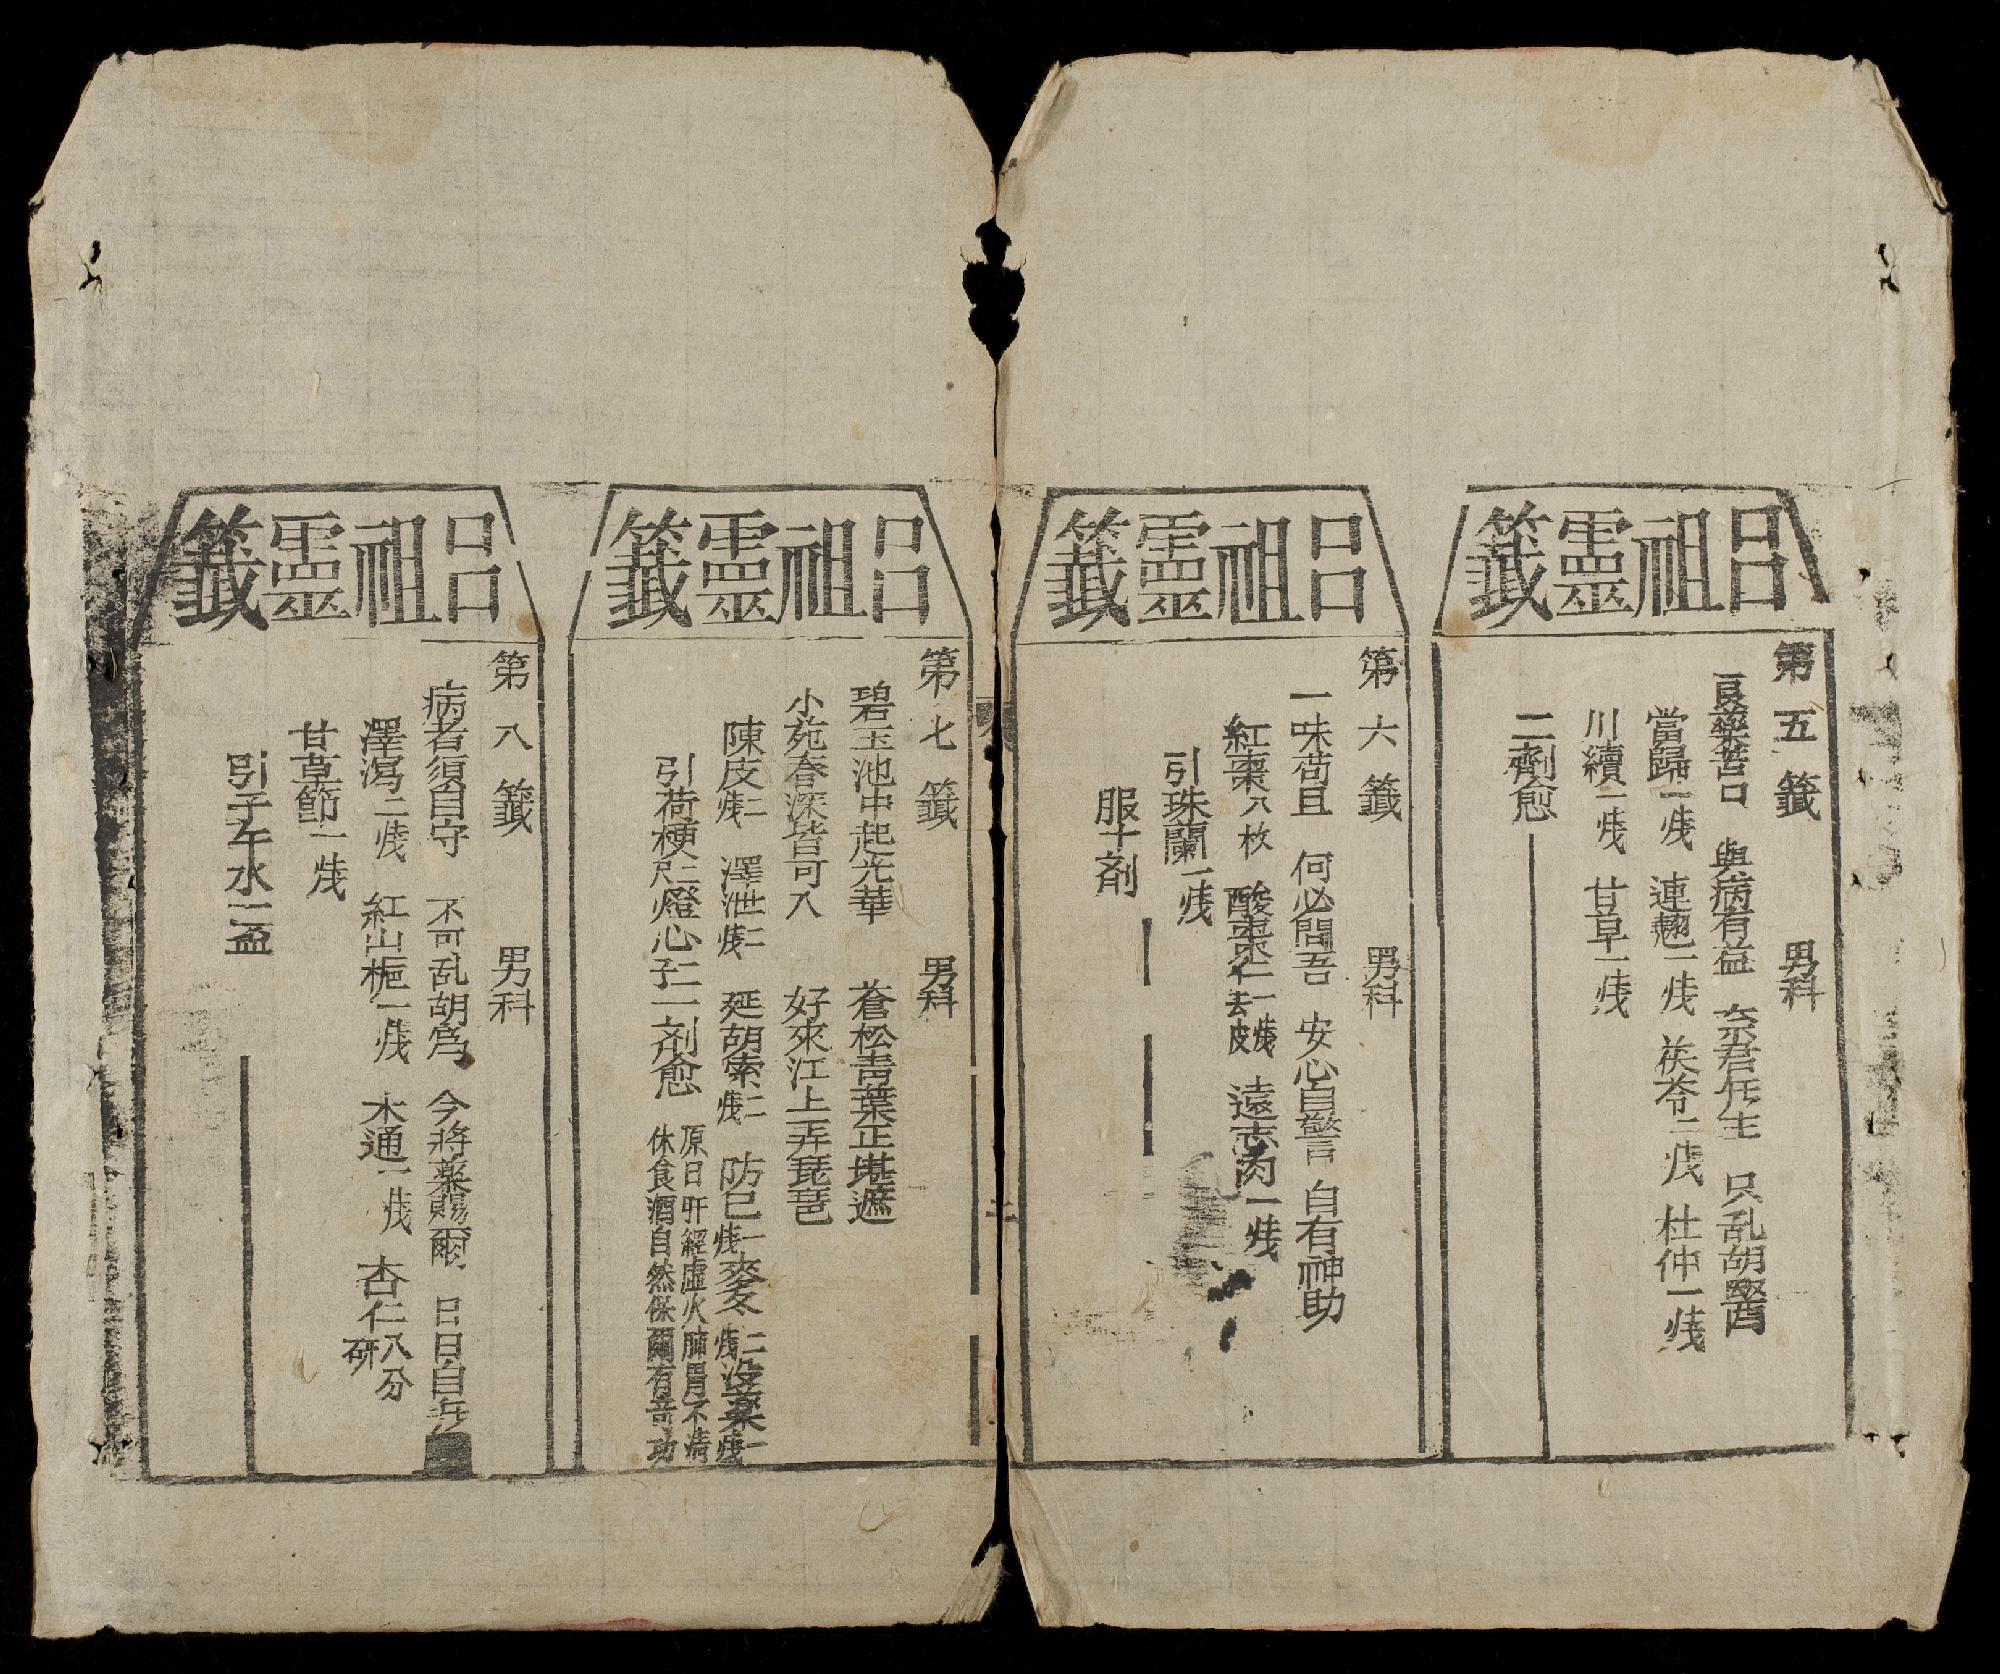 呂祖靈籤
第五籤 男科
良藥苦口 與病有益 奈君任生 只乱胡醫
當歸一戔 連翹一戔 茯苓二戔 杜仲一戔
川續一戔 甘草一戔
二劑愈
呂祖靈籤
第六籤 男科
一味苟且 何必問吾 安心自警 自有神助
紅棗八枚 酸棗仁一戔去皮 遠志肉一戔
引珠蘭一戔
服十剤
呂祖靈籤
第七籤 男科
碧玉池中起光華 蒼松青葉正堪遮
小苑春深皆可入 好來江上弄琵琶
陳皮二戔 澤泄二戔 延胡索二戔 防已一戔 麥冬二戔 没藥一戔
引荷梗尺二燈心子二 二剤愈 原日肝經虛火肺胃不清
休食酒自然保爾有竒功
呂祖靈籤
第八籤 男科
病者須自守 不可乱胡爲 今將藥賜爾 日日自
澤瀉二戔 紅山栀一戔 木通一戔 杏仁八分研
甘草節一戔
引子午水二盃